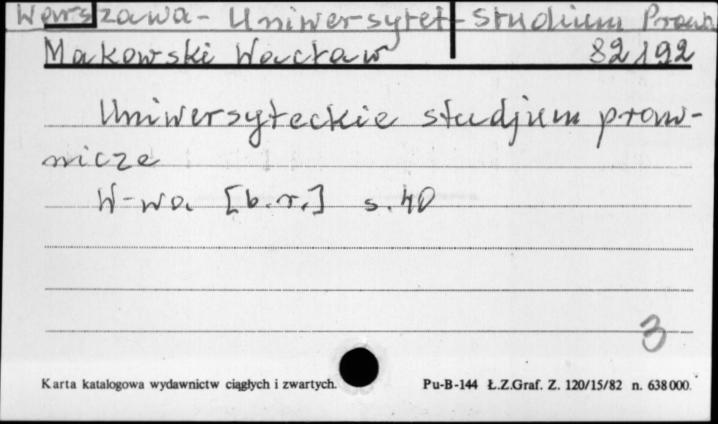 Warszawa - Uniwersytet - studium Prawn
Makowski Wacław 82192
Uniwersyteckie studjum praw-
nicze
W-wa [b.r.] s. 40
3
Karta katalogowa wydawnictw ciągłych i zwartych. Pu-B-144 Ł.Z.Graf. Z. 120/15/82 n. 638000.